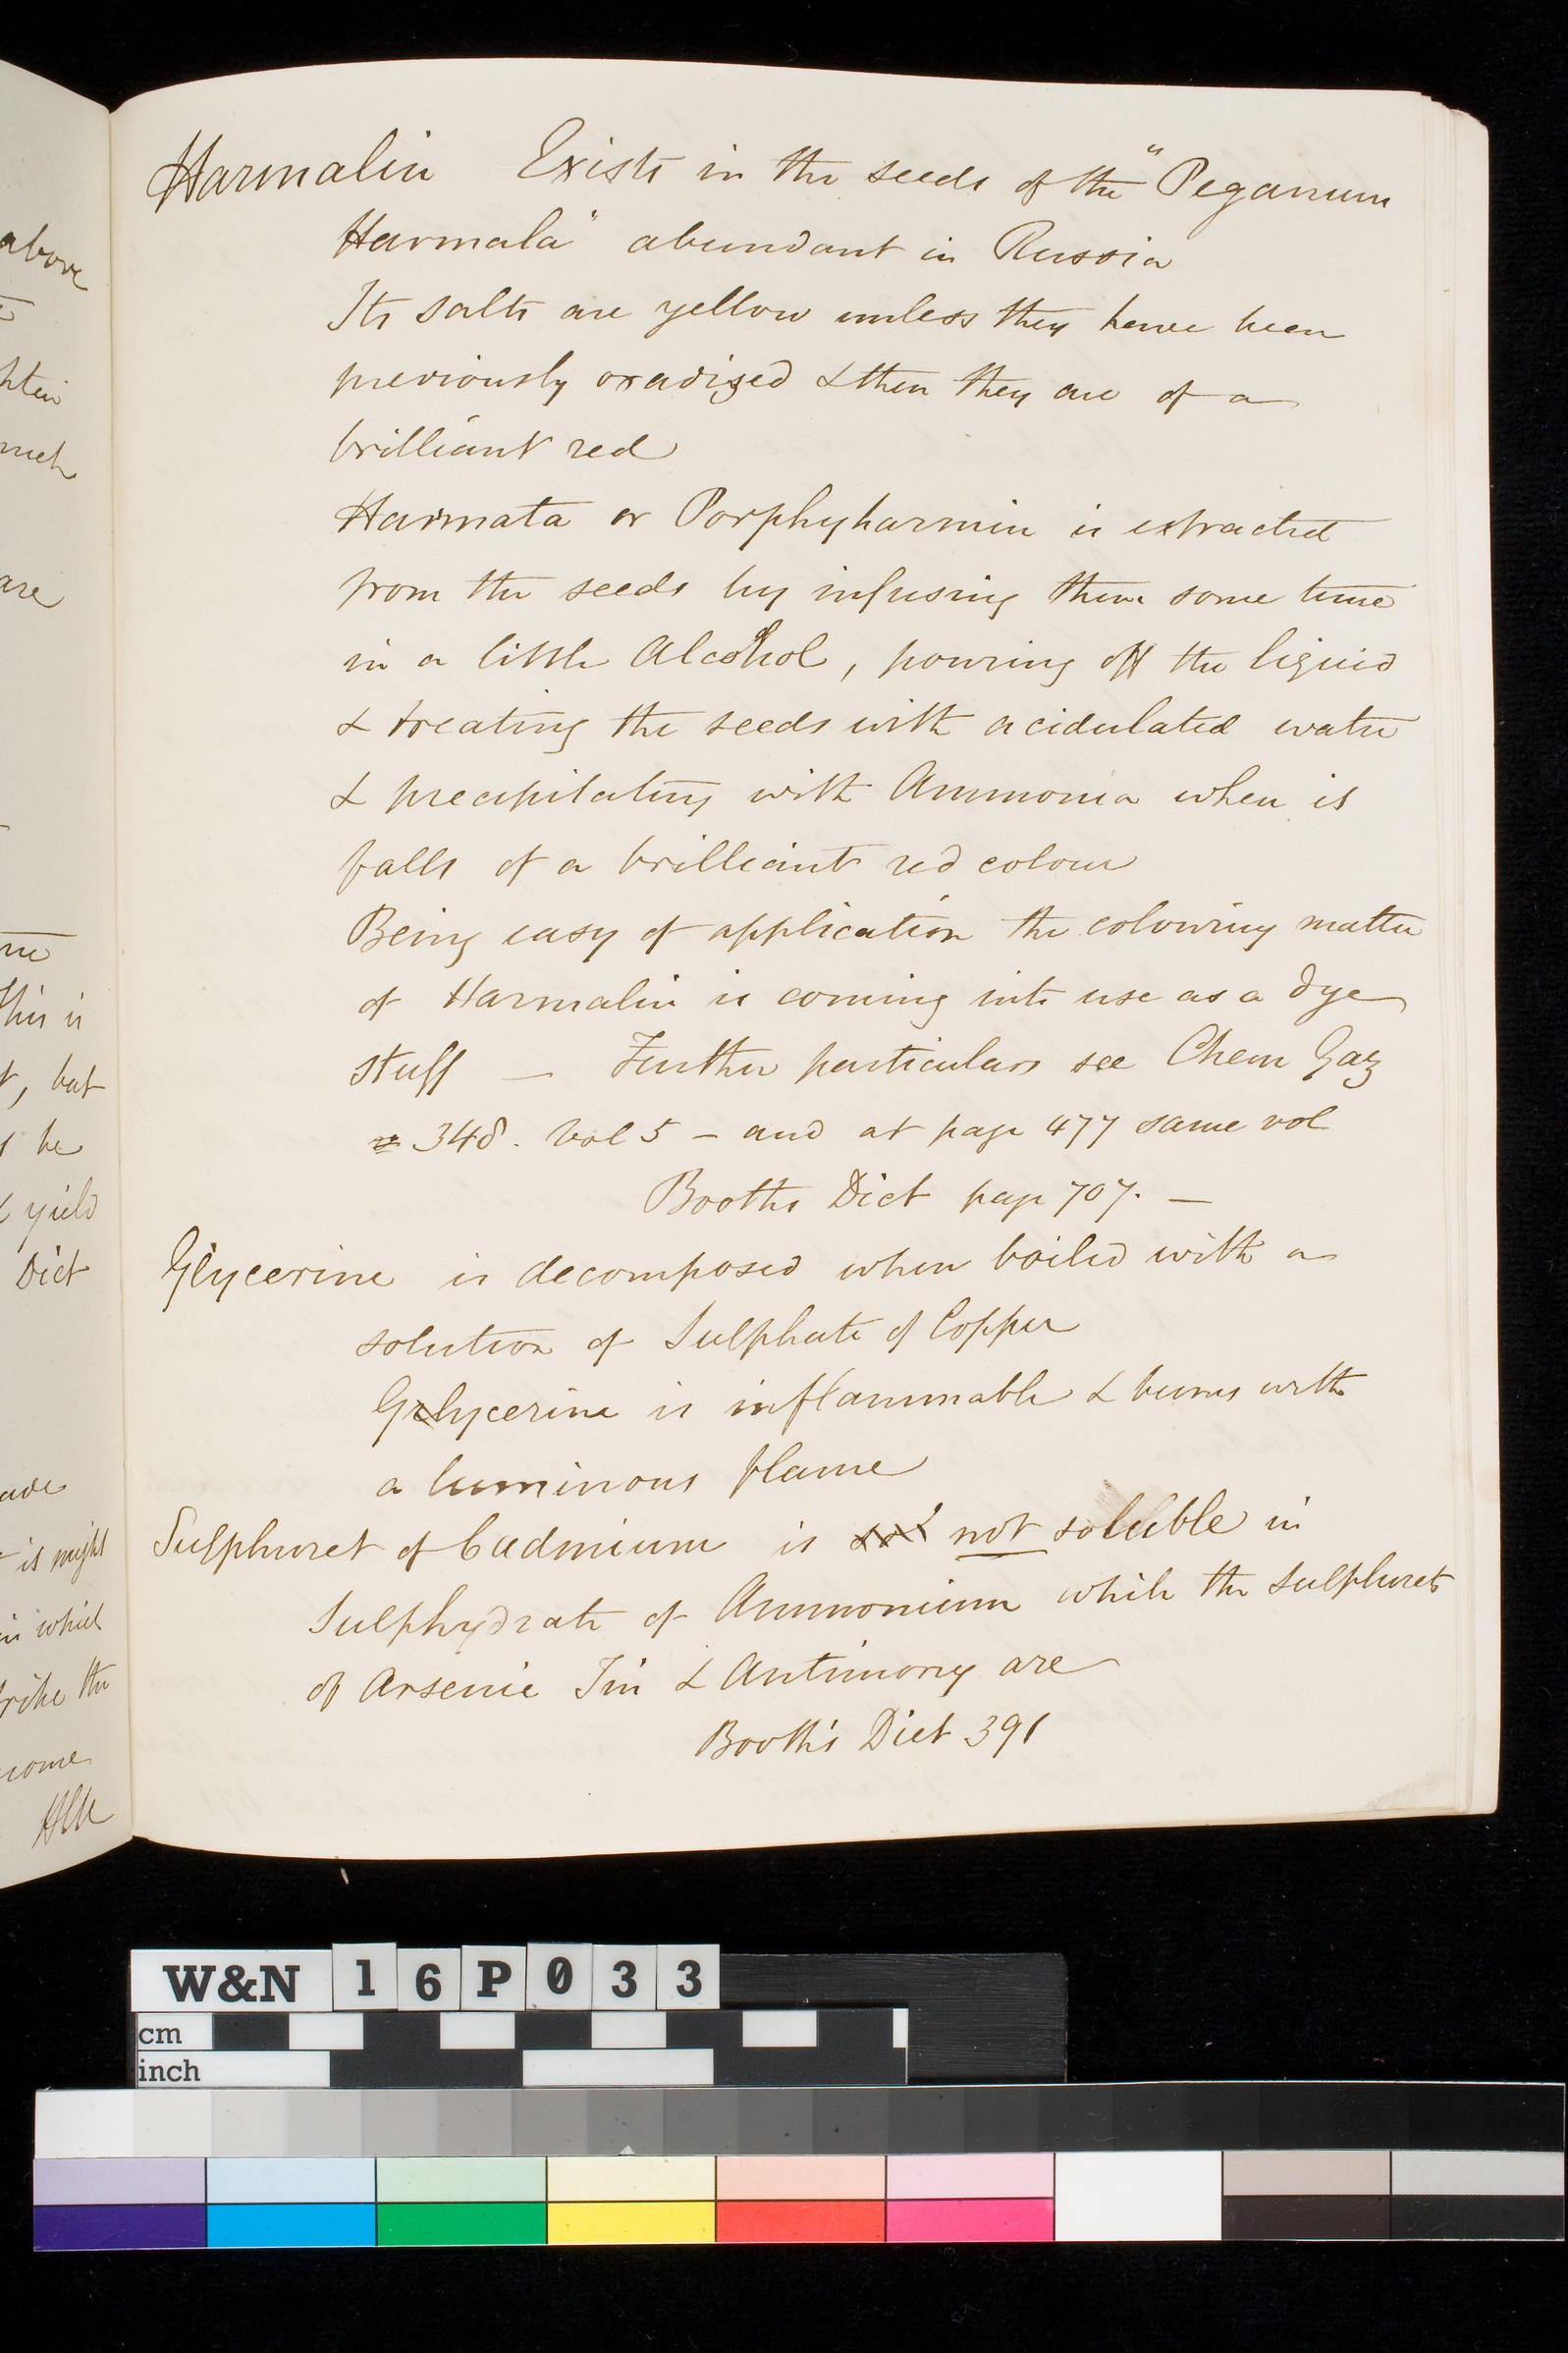 above
htein
much
are
This is
t, but
s he
& yield
Dict
is might
in which
strike the
some
Harmalin Exists in the seeds of the "Peganum
Harmala" abundant in Russia
Its salts are yellow unless they have been
previously oxadized & then they are of a
brilliant red
Harmata or Porphyharmin is extracted
from the seeds by infusing them some time
in a little Alcohol, pouring off the liquid
& treating the seeds with acidulated water
& precipitating with Ammonia when is
falls of a brilliant red colour
Being easy of application the colouring matter
of Harmalin is coming into use as a dye
stuff — Further particulars see Chem Gaz
348. Vol 5 – and at page 477 same vol
Booths Dict page 707. —
Glycerine is decomposed when boiled with a
solution of Sulphate of Copper
Glycerine is inflammable & burns with
a luminous flame
Sulphuret of Cadmium is not soluble in
Sulphydrate of Ammonium while the Sulphurets
of Arsenic Tin & Antimony are
Booth's Dict 391
W&N 16P033
cm
inch